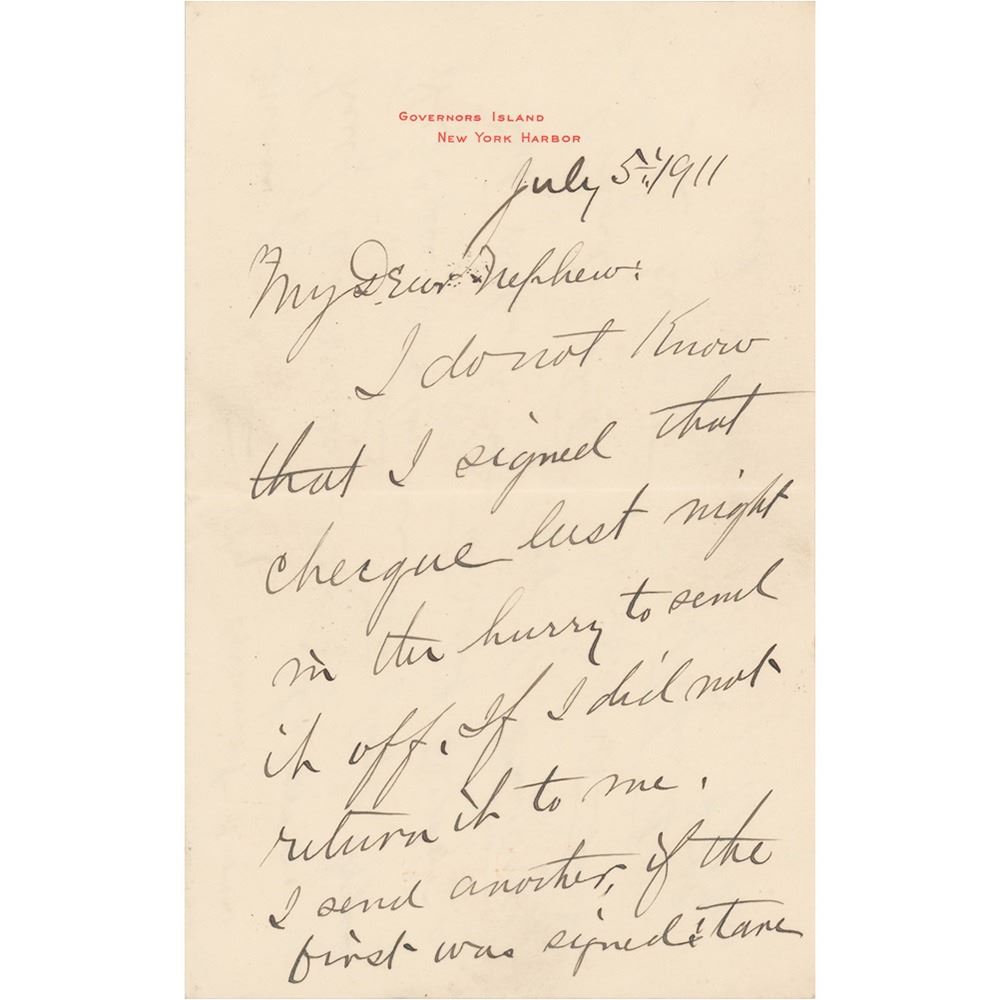 GOVERNORS ISLAND
NEW YORK HARBOR
July 5" 1911
My Dear Nephew:
I do not Know
that I signed that
checque last night
in the hurry to send
it off. If I did not
return it to me.
I send another, if the
first was signed